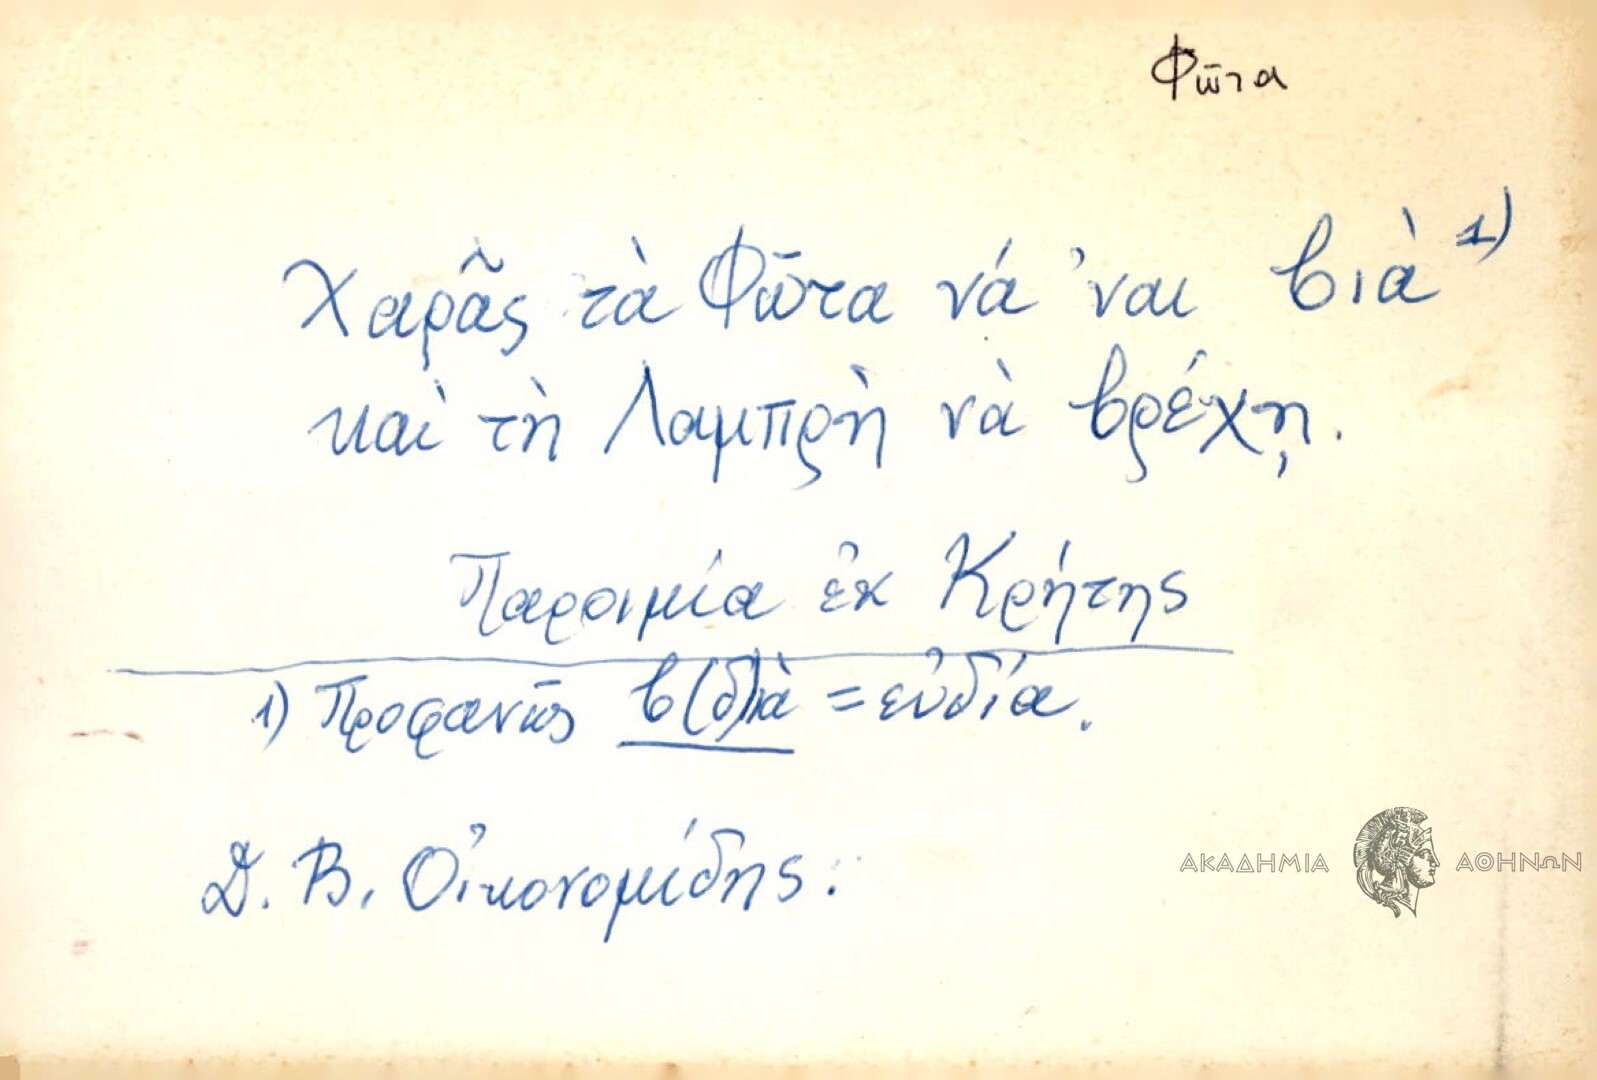 Φῶτα
Χαρᾶς τὰ Φῶτα νά 'ναι βιὰ 1)
καὶ τὴ Λαμπρὴ νὰ βρέχῃ.
Παροιμία ἐκ Κρήτης
1) Προφανῶς β(δ)ιὰ = εὐδία.
Δ. Β. Οἰκονομίδης:
ΑΚΑΔΗΜΙΑ ΑΘΗΝΩΝ